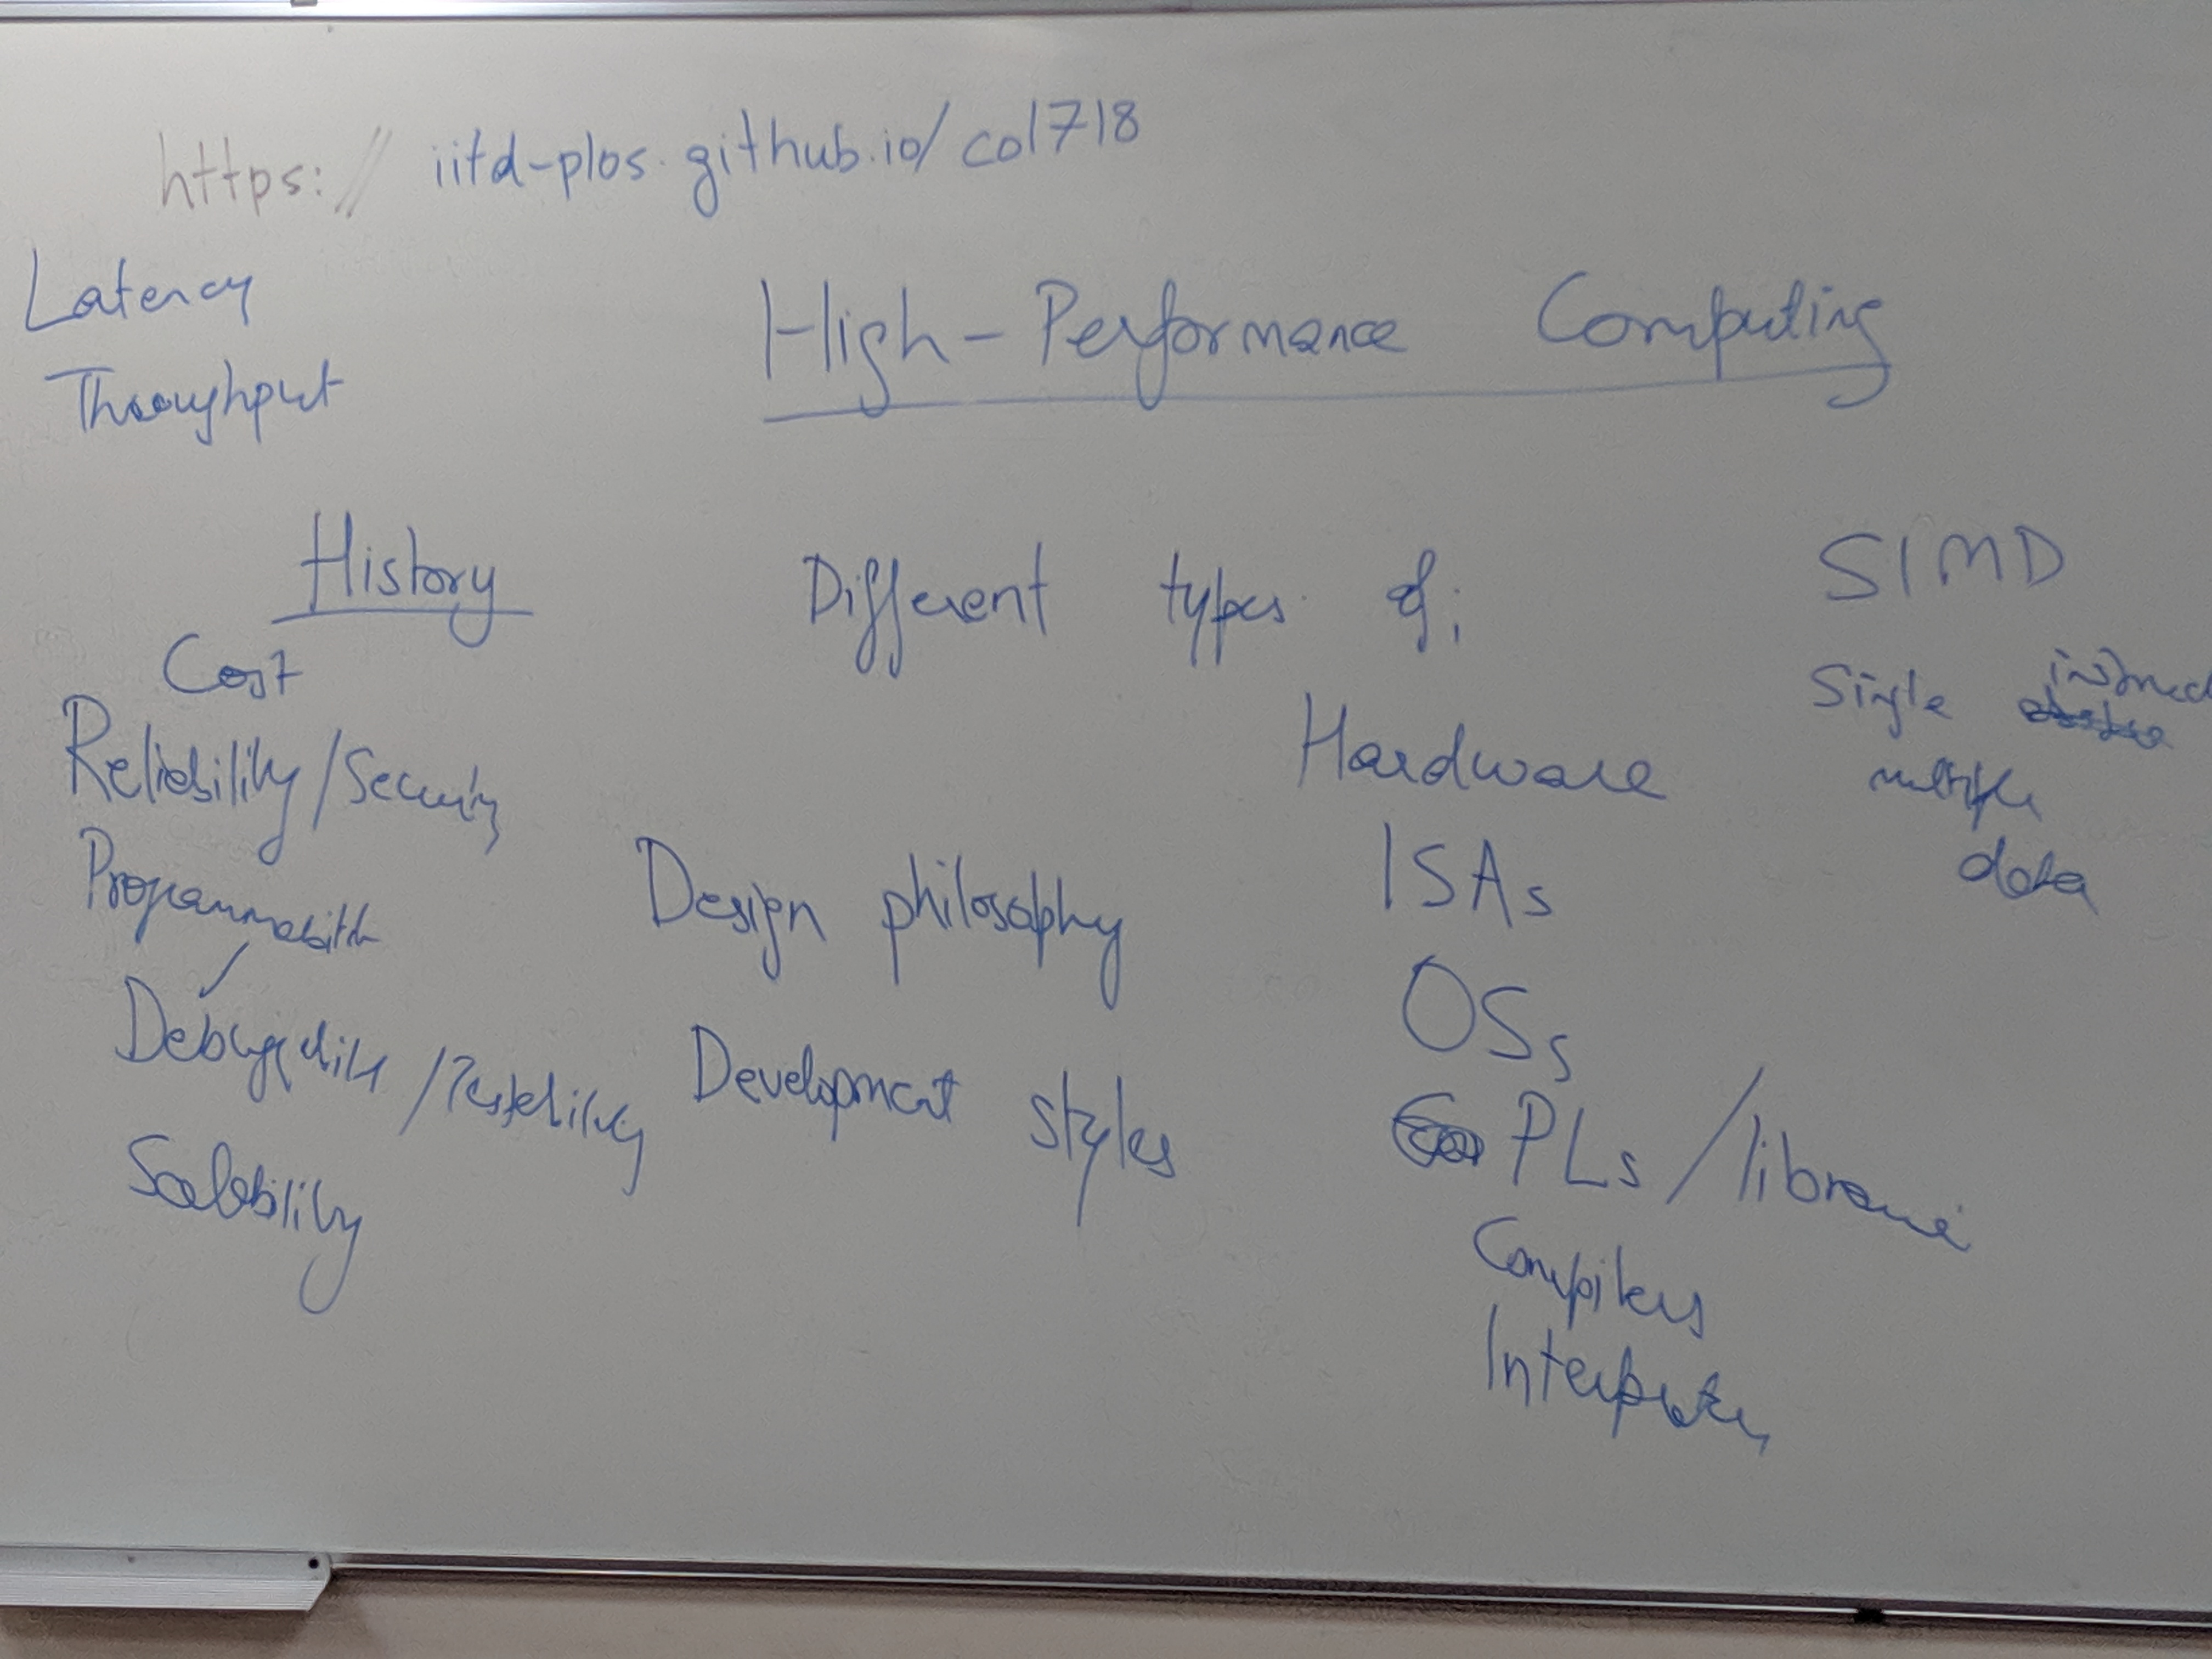 https:// iitd-plos.github.io/col718
Latency
Throughput
High-Performance Computing
History
Cost
Reliability/Security
Programmability
Debuggability/Testability
Scalability
Different types of:
Design philosophy
Development styles
Hardware
ISAs
OSs
PLs/libraries
Compilers
Interpreters
SIMD
Single
multiple
data